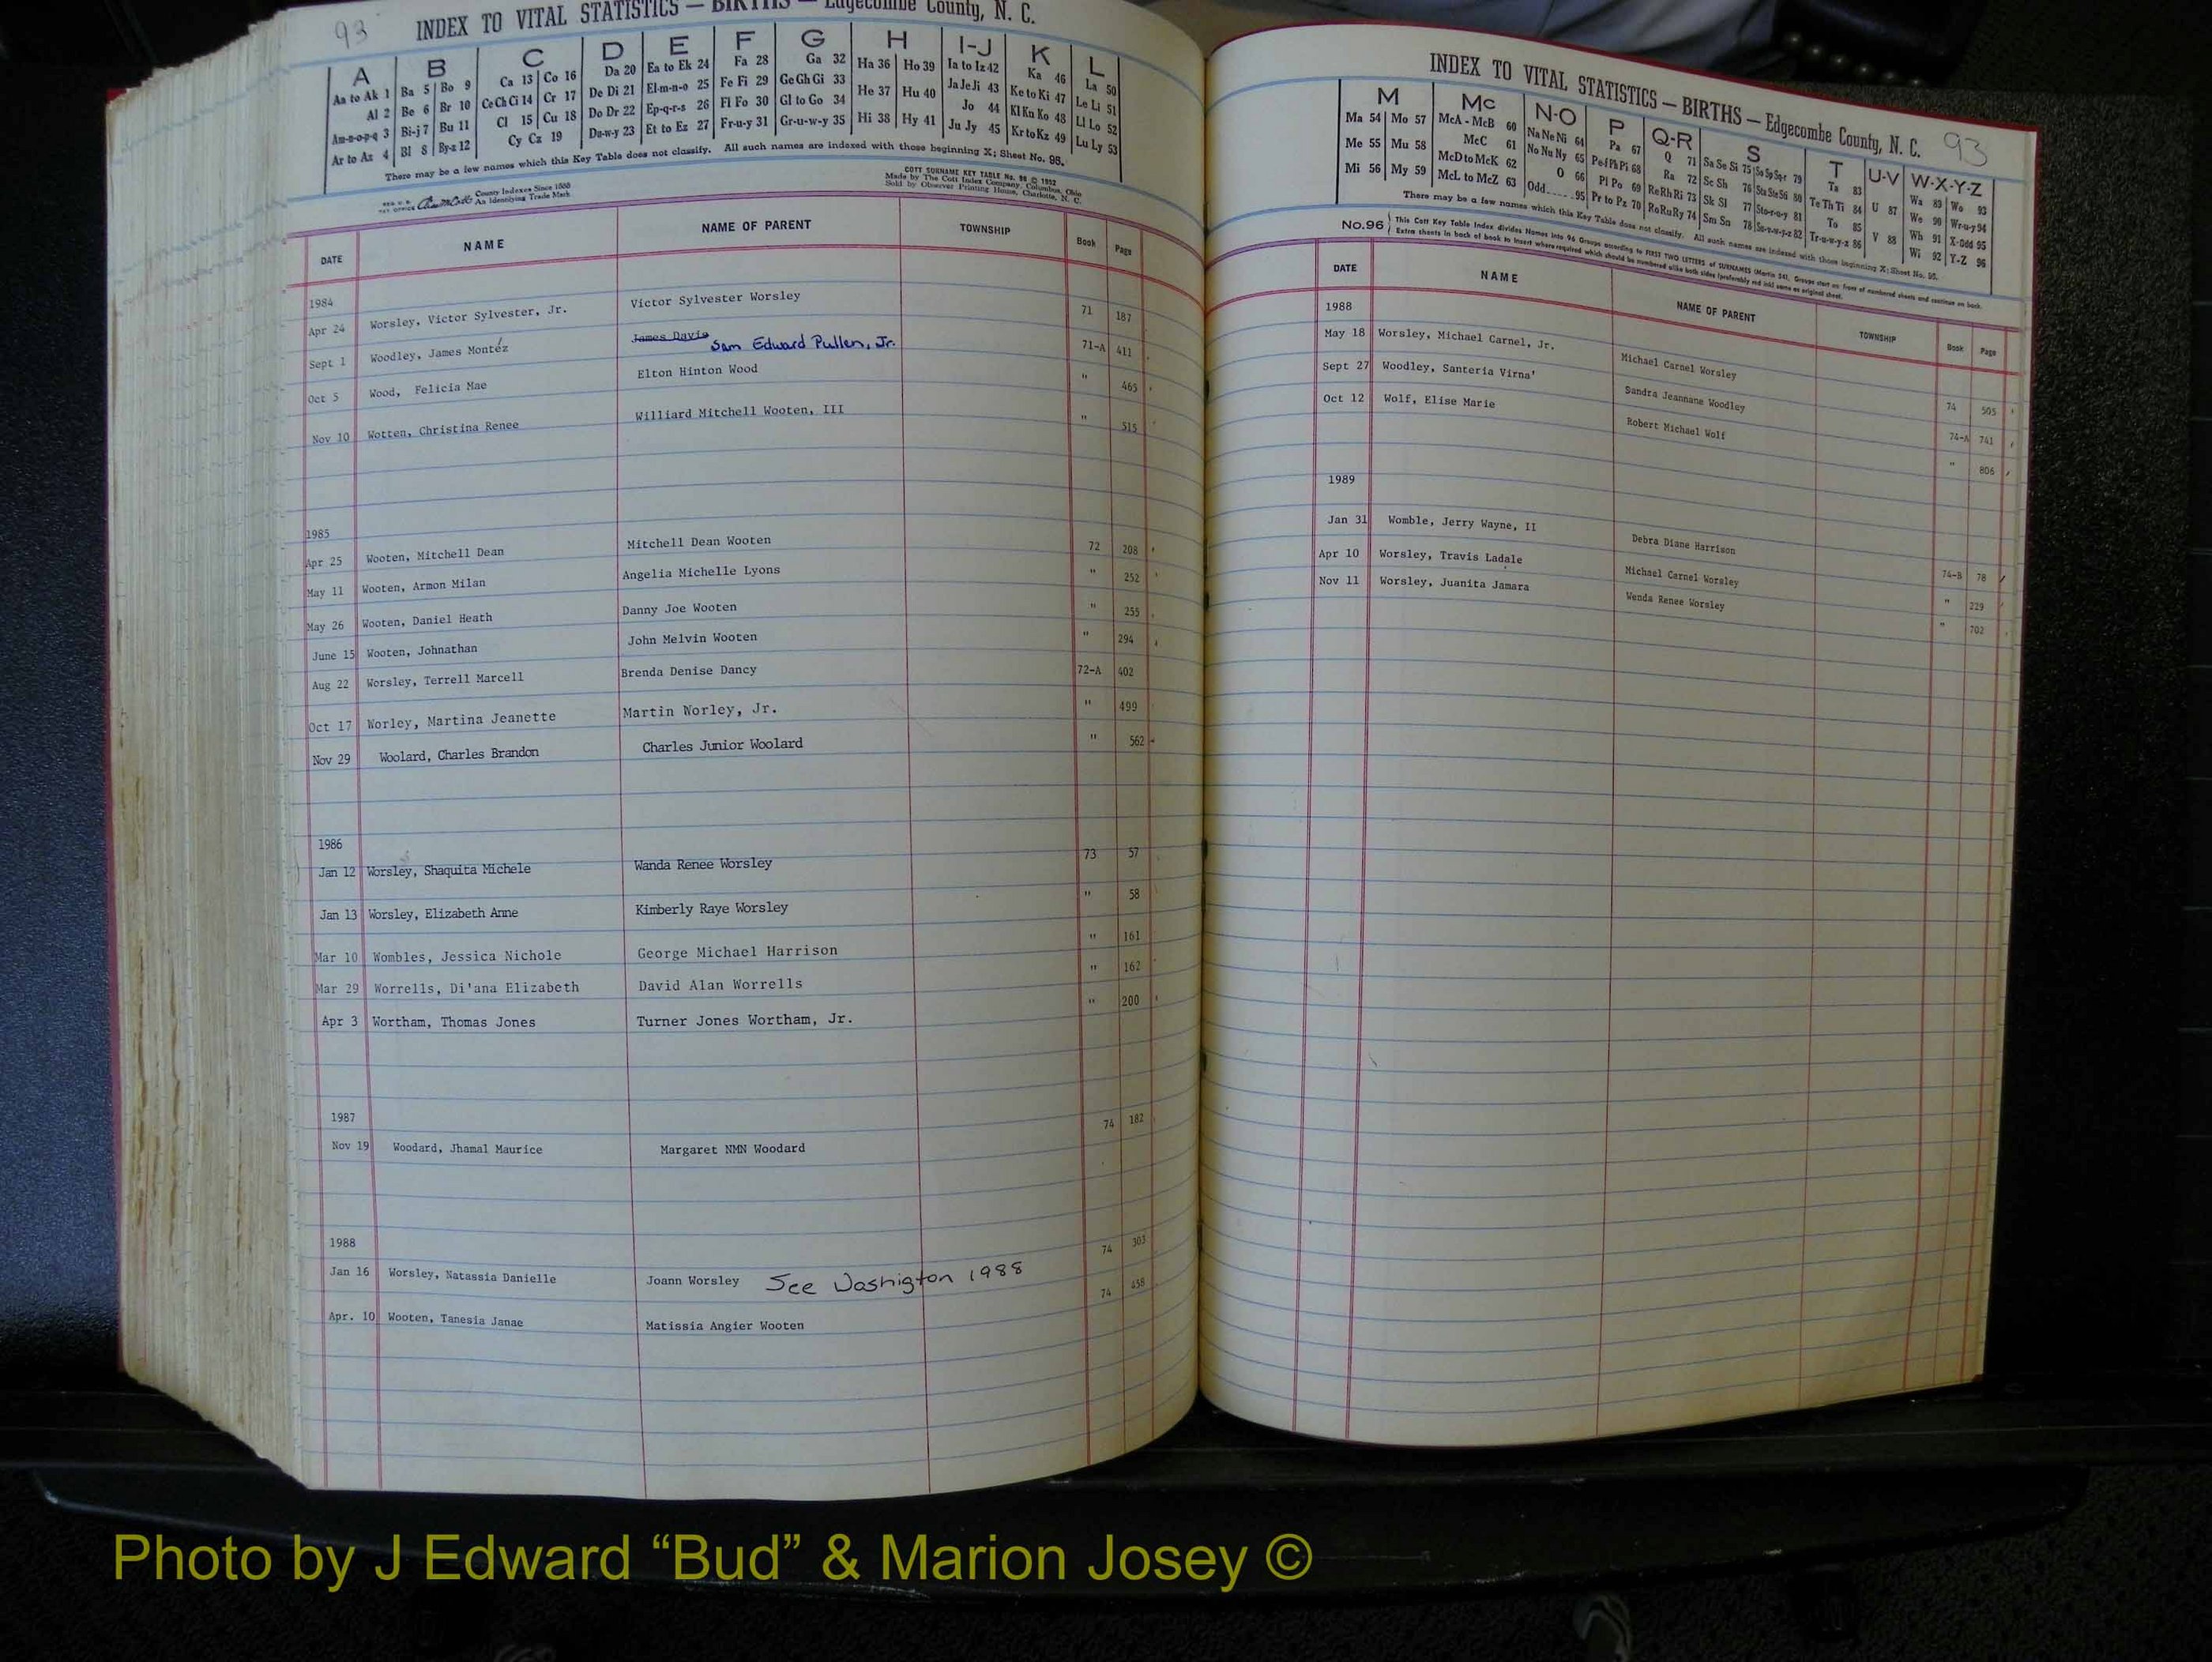 93 INDEX TO VITAL STATISTICS — BIRTHS — Edgecombe County, N. C.
A B C D E F G H I-J K L
Aa to Ak 1 Ba 5 Bo 9 Ca 13 Co 16 Da 20 Ea to Ek 24 Fa 28 Ga 32 Ha 36 Ho 39 Ia to Iz 42 Ka 46 La 50
Al 2 Be 6 Br 10 Ce Ch Ci 14 Cr 17 De Di 21 El-m-n-o 25 Fe Fi 29 Ge Gh Gi 33 He 37 Hu 40 Ja Je Ji 43 Ke to Ki 47 Le Li 51
Am-n-o-p-q 3 Bi-j 7 Bu 11 Cl 15 Cu 18 Do Dr 22 Ep-q-r-s 26 Fl Fo 30 Gl to Go 34 Hi 38 Hy 41 Jo 44 Kl Kn Ko 48 Ll Lo 52
Ar to Az 4 Bl 8 By-z 12 Cy Cz 19 Du-w-y 23 Et to Ez 27 Fr-u-y 31 Gr-u-w-y 35 Ju Jy 45 Kr to Kz 49 Lu Ly 53
There may be a few names which this Key Table does not classify. All such names are indexed with those beginning X; Sheet No. 95.
County Indexes Since 1888
An Identifying Trade Mark
COTT SURNAME KEY TABLE No. 96 © 1932
Made by The Cott Index Company, Columbus, Ohio
Sold by Observer Printing House, Charlotte, N. C.
DATE NAME NAME OF PARENT TOWNSHIP Book Page
1984
Apr 24 Worsley, Victor Sylvester, Jr. Victor Sylvester Worsley 71 187
Sept 1 Woodley, James Montéz James Davis Sam Edward Pullen, Jr. 71-A 411
Oct 5 Wood, Felicia Mae Elton Hinton Wood " 465
Nov 10 Wotten, Christina Renee Williard Mitchell Wooten, III " 515
1985
Apr 25 Wooten, Mitchell Dean Mitchell Dean Wooten 72 208
May 11 Wooten, Armon Milan Angelia Michelle Lyons " 252
May 26 Wooten, Daniel Heath Danny Joe Wooten " 255
June 15 Wooten, Johnathan John Melvin Wooten " 294
Aug 22 Worsley, Terrell Marcell Brenda Denise Dancy 72-A 402
Oct 17 Worley, Martina Jeanette Martin Worley, Jr. " 499
Nov 29 Woolard, Charles Brandon Charles Junior Woolard " 562
1986
Jan 12 Worsley, Shaquita Michele Wanda Renee Worsley 73 57
Jan 13 Worsley, Elizabeth Anne Kimberly Raye Worsley " 58
Mar 10 Wombles, Jessica Nichole George Michael Harrison " 161
Mar 29 Worrells, Di'ana Elizabeth David Alan Worrells " 162
Apr 3 Wortham, Thomas Jones Turner Jones Wortham, Jr. " 200
1987
Nov 19 Woodard, Jhamal Maurice Margaret NMN Woodard 74 182
1988
Jan 16 Worsley, Natassia Danielle Joann Worsley See Washigton 1988 74 303
Apr. 10 Wooten, Tanesia Janae Matissia Angier Wooten 74 458
INDEX TO VITAL STATISTICS — BIRTHS — Edgecombe County, N. C. 93
M Mc N-O P Q-R S T U-V W-X-Y-Z
Ma 54 Mo 57 McA - McB 60 Na Ne Ni 64 Pa 67 Q 71 Sa Se Si 75 So Sp Sq-r 79 Ta 83 U 87 Wa 89 Wo 93
Me 55 Mu 58 McC 61 No Nu Ny 65 Pe Pf Ph Pi 68 Ra 72 Sc Sh 76 Sta Ste Sti 80 Te Th Ti 84 V 88 We 90 Wr-u-y 94
Mi 56 My 59 McD to McK 62 O 66 Pl Po 69 Re Rh Ri 73 Sk Sl 77 Sto-r-u-y 81 To 85 Wh 91 X-Odd 95
McL to McZ 63 Odd 95 Pr to Pz 70 Ro Ru Ry 74 Sm Sn 78 Su-v-w-y-z 82 Tr-u-w-y-z 86 Wi 92 Y-Z 96
There may be a few names which this Key Table does not classify. All such names are indexed with those beginning X; Sheet No. 95.
No.96 This Cott Key Table Index divides Names into 96 Groups according to FIRST TWO LETTERS of SURNAMES (Martin 54). Groups start on front of numbered sheets and continue on back.
Extra sheets in back of book to insert where required which should be numbered alike both sides (preferably red ink) same as original sheet.
DATE NAME NAME OF PARENT TOWNSHIP Book Page
1988
May 18 Worsley, Michael Carnel, Jr. Michael Carnel Worsley 74 505
Sept 27 Woodley, Santeria Virna' Sandra Jeannane Woodley 74-A 741
Oct 12 Wolf, Elise Marie Robert Michael Wolf " 806
1989
Jan 31 Womble, Jerry Wayne, II Debra Diane Harrison 74-B 78
Apr 10 Worsley, Travis Ladale Michael Carnel Worsley " 229
Nov 11 Worsley, Juanita Jamara Wenda Renee Worsley " 702
Photo by J Edward “Bud” & Marion Josey ©